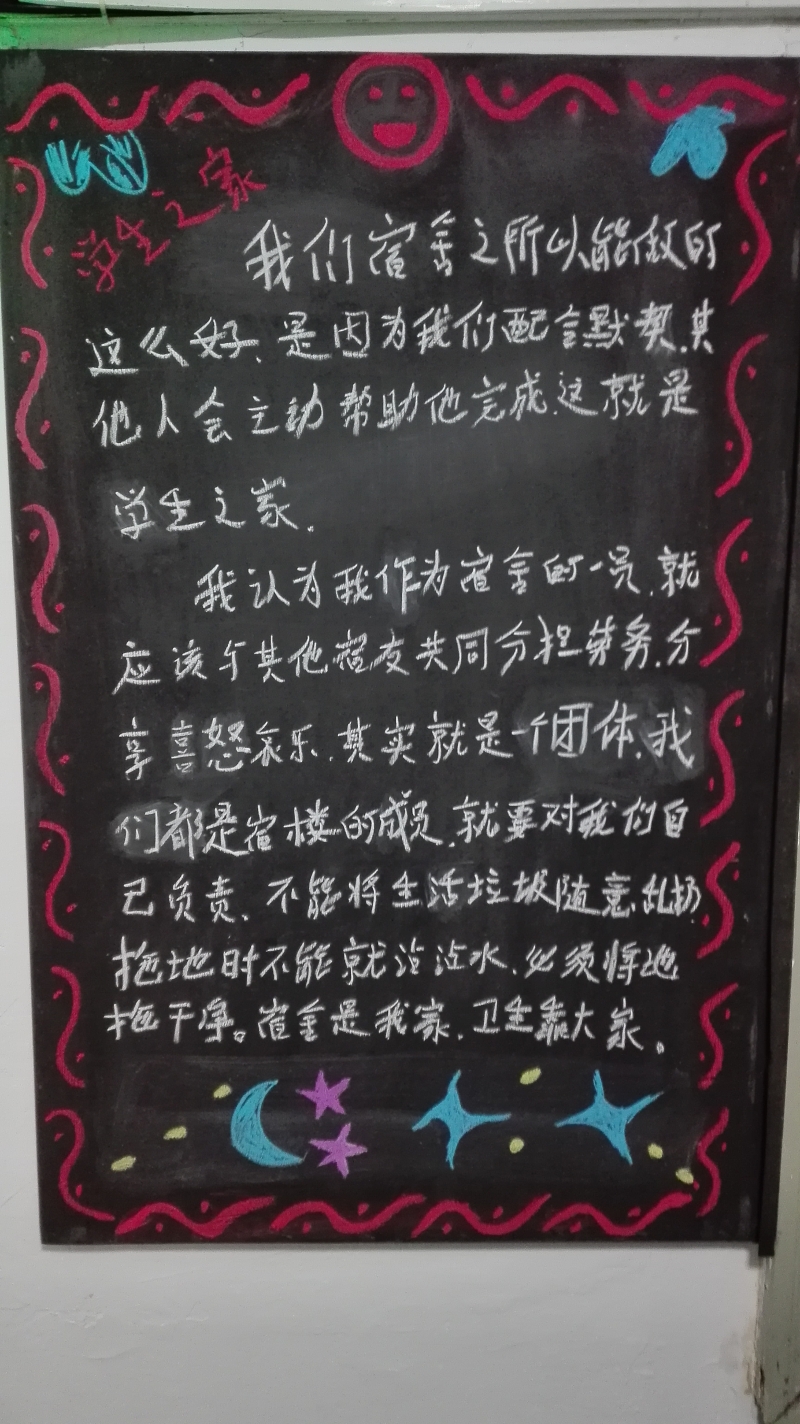 学生之家
我们宿舍之所以能做的
这么好、是因为我们配合默契.其
他人会主动帮助他完成.这就是
学生之家.
我认为我作为宿舍的一员.就
应该与其他宿友共同分担劳务.分
享喜怒哀乐.其实就是一个团体.我
们都是宿楼的成员.就要对我们自
己负责、不能将生活垃圾随意乱扔
拖地时不能就沾沾水.必须将地
拖干净。宿舍是我家.卫生靠大家。